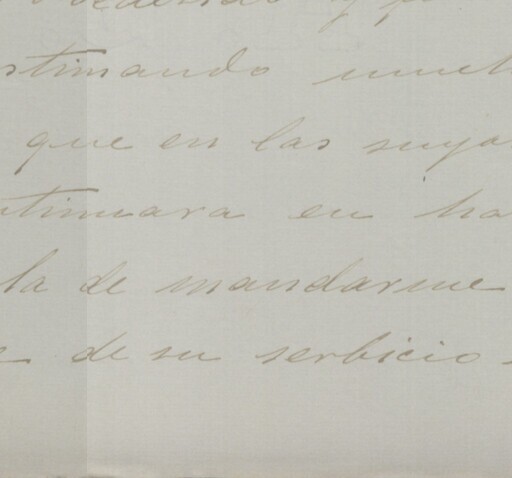 stimando much
que en las suyas
ntinuara en ha
la de mandarme
de su serbicio